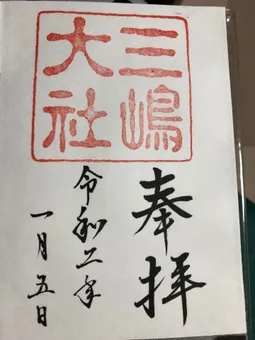 奉拝
三嶋
大社
令和二年
一月五日